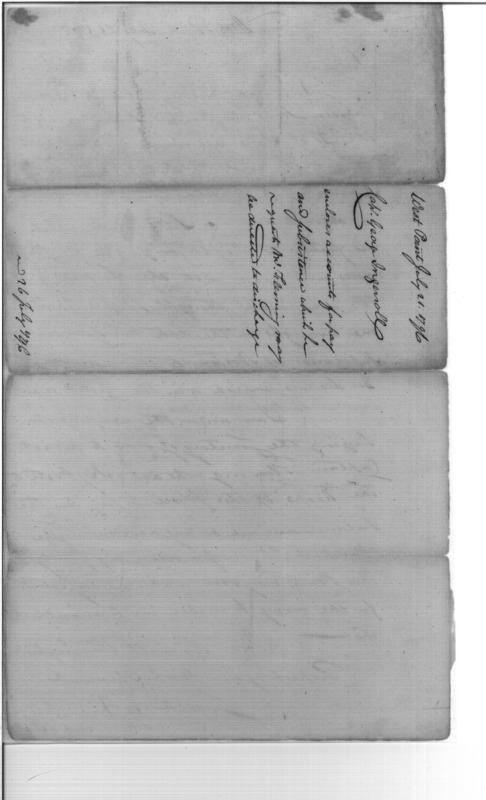 West Point July 21. 1796
Capt. Geog Ingersoll
encloses accounts for pay
and subsistence which he
requests Mr. Fleming may
be directed to discharge
26 July 1796